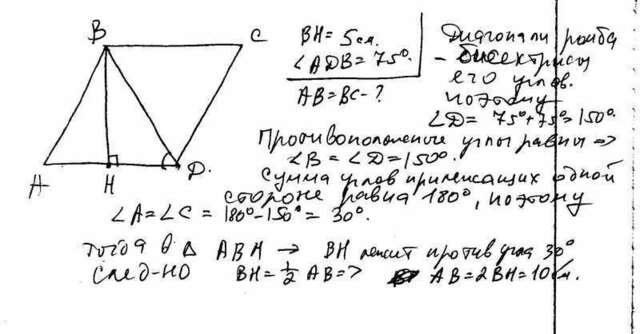 B
C
A
H
D.
BH = 5см.
∠ADB = 75°.
AB = BC - ?
Диагонали ромба
- биссектрисы
его углов.
поэтому
∠D = 75° + 75° = 150°.
Противоположные углы равны =>
∠B = ∠D = 150°.
Сумма углов прилежащих одной
стороне равна 180°, поэтому
∠A = ∠C = 180° - 150° = 30°.
тогда в Δ ABH → BH лежит против угла 30°
след-но BH = ½ AB => AB = 2BH = 10см.